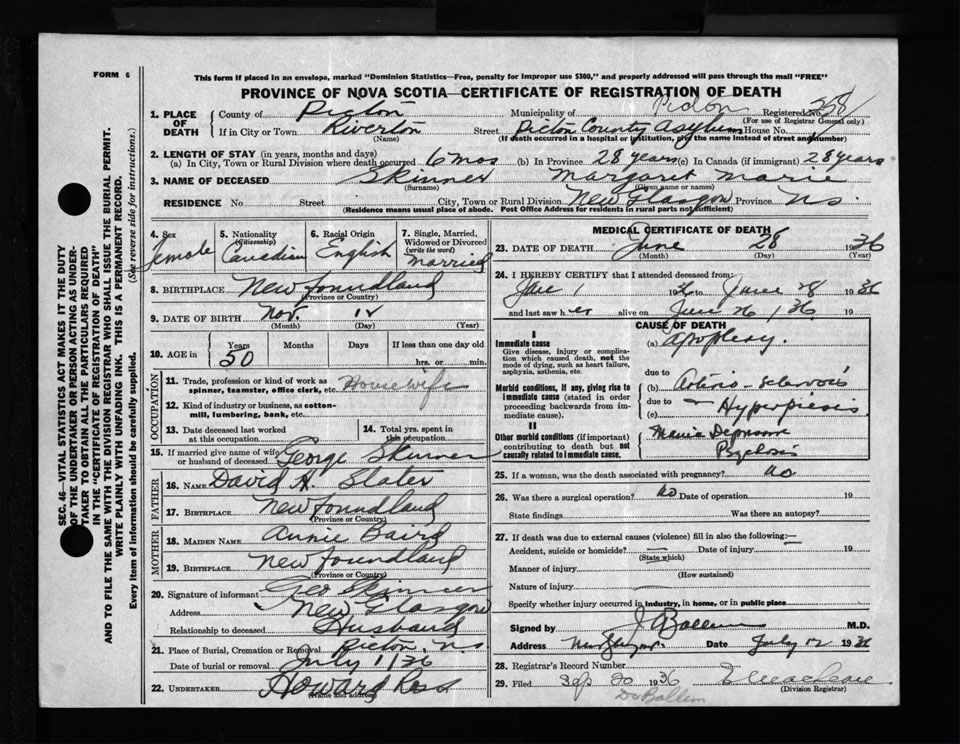 FORM 6
This form if placed in an envelope, marked "Dominion Statistics—Free, penalty for improper use $300," and properly addressed will pass through the mail "FREE"
PROVINCE OF NOVA SCOTIA—CERTIFICATE OF REGISTRATION OF DEATH
1. PLACE OF DEATH
County of Pictou Municipality of Pictou Registered No. 258
(For use of Registrar General only)
If in City or Town Riverton Street Pictou County Asylum House No.
(Name) (If death occurred in a hospital or institution, give the name instead of street and number)
2. LENGTH OF STAY (in years, months and days)
(a) In City, Town or Rural Division where death occurred 6 mos (b) In Province 28 years (c) In Canada (if immigrant) 28 years
3. NAME OF DECEASED Skinner Margaret Maria
(Surname) (Given name or names)
RESIDENCE No. Street City, Town or Rural Division New Glasgow Province N.S.
(Residence means usual place of abode. Post Office Address for residents in rural parts not sufficient)
4. Sex Female
5. Nationality (Citizenship) Canadian
6. Racial Origin English
7. Single, Married, Widowed or Divorced (write the word) married
8. BIRTHPLACE Newfoundland
(Province or Country)
9. DATE OF BIRTH Nov. 12
(Month) (Day) (Year)
10. AGE in Years 50 Months Days If less than one day old hrs. or min.
OCCUPATION
11. Trade, profession or kind of work as spinner, teamster, office clerk, etc. Housewife
12. Kind of industry or business, as cotton-mill, lumbering, bank, etc.
13. Date deceased last worked at this occupation
14. Total yrs. spent in this occupation
15. If married give name of wife or husband of deceased George Skinner
FATHER
16. NAME David H. Slater
17. BIRTHPLACE Newfoundland
(Province or Country)
MOTHER
18. MAIDEN NAME Annie Baird
19. BIRTHPLACE Newfoundland
(Province or Country)
20. Signature of informant Geo Skinner
Address New Glasgow
Relationship to deceased Husband
21. Place of Burial, Cremation or Removal Pictou, N.S.
Date of burial or removal July 1/36
22. UNDERTAKER Howard Ross
(Name and address)
MEDICAL CERTIFICATE OF DEATH
23. DATE OF DEATH June 28 1936
(Month) (Day) (Year)
24. I HEREBY CERTIFY that I attended deceased from:
1 1936 to June 28 1936
and last saw her alive on June 26/36
CAUSE OF DEATH
I
Immediate cause
Give disease, injury or complication which caused death, not the mode of dying, such as heart failure, asphyxia, asthenia, etc.
(a) apoplexy.
due to
Morbid conditions, if any, giving rise to immediate cause (stated in order proceeding backwards from immediate cause).
(b) Arterio-sclerosis
due to
(c) Hyperpiesis
II
Other morbid conditions (if important) contributing to death but not causally related to immediate cause.
Manic Depressive
25. If a woman, was the death associated with pregnancy? no
26. Was there a surgical operation? no Date of operation 19
State findings Was there an autopsy?
27. If death was due to external causes (violence) fill in also the following:—
Accident, suicide or homicide? Date of injury 19
(State which)
Manner of injury
(How sustained)
Nature of injury
Specify whether injury occurred in industry, in home, or in public place
Signed by J Ballem M.D.
Address New Glasgow Date July 12 1936
28. Registrar's Record Number
29. Filed Sep 20 1936
(Division Registrar)
Dr Ballem
SEC. 46—VITAL STATISTICS ACT MAKES IT THE DUTY
OF THE UNDERTAKER OR PERSON ACTING AS UNDER-
TAKER TO OBTAIN ALL THE PARTICULARS REQUIRED
IN THE "CERTIFICATE OF REGISTRATION OF DEATH"
AND TO FILE THE SAME WITH THE DIVISION REGISTRAR WHO SHALL ISSUE THE BURIAL PERMIT.
WRITE PLAINLY WITH UNFADING INK. THIS IS A PERMANENT RECORD.
Every item of information should be carefully supplied. (See reverse side for instructions.)